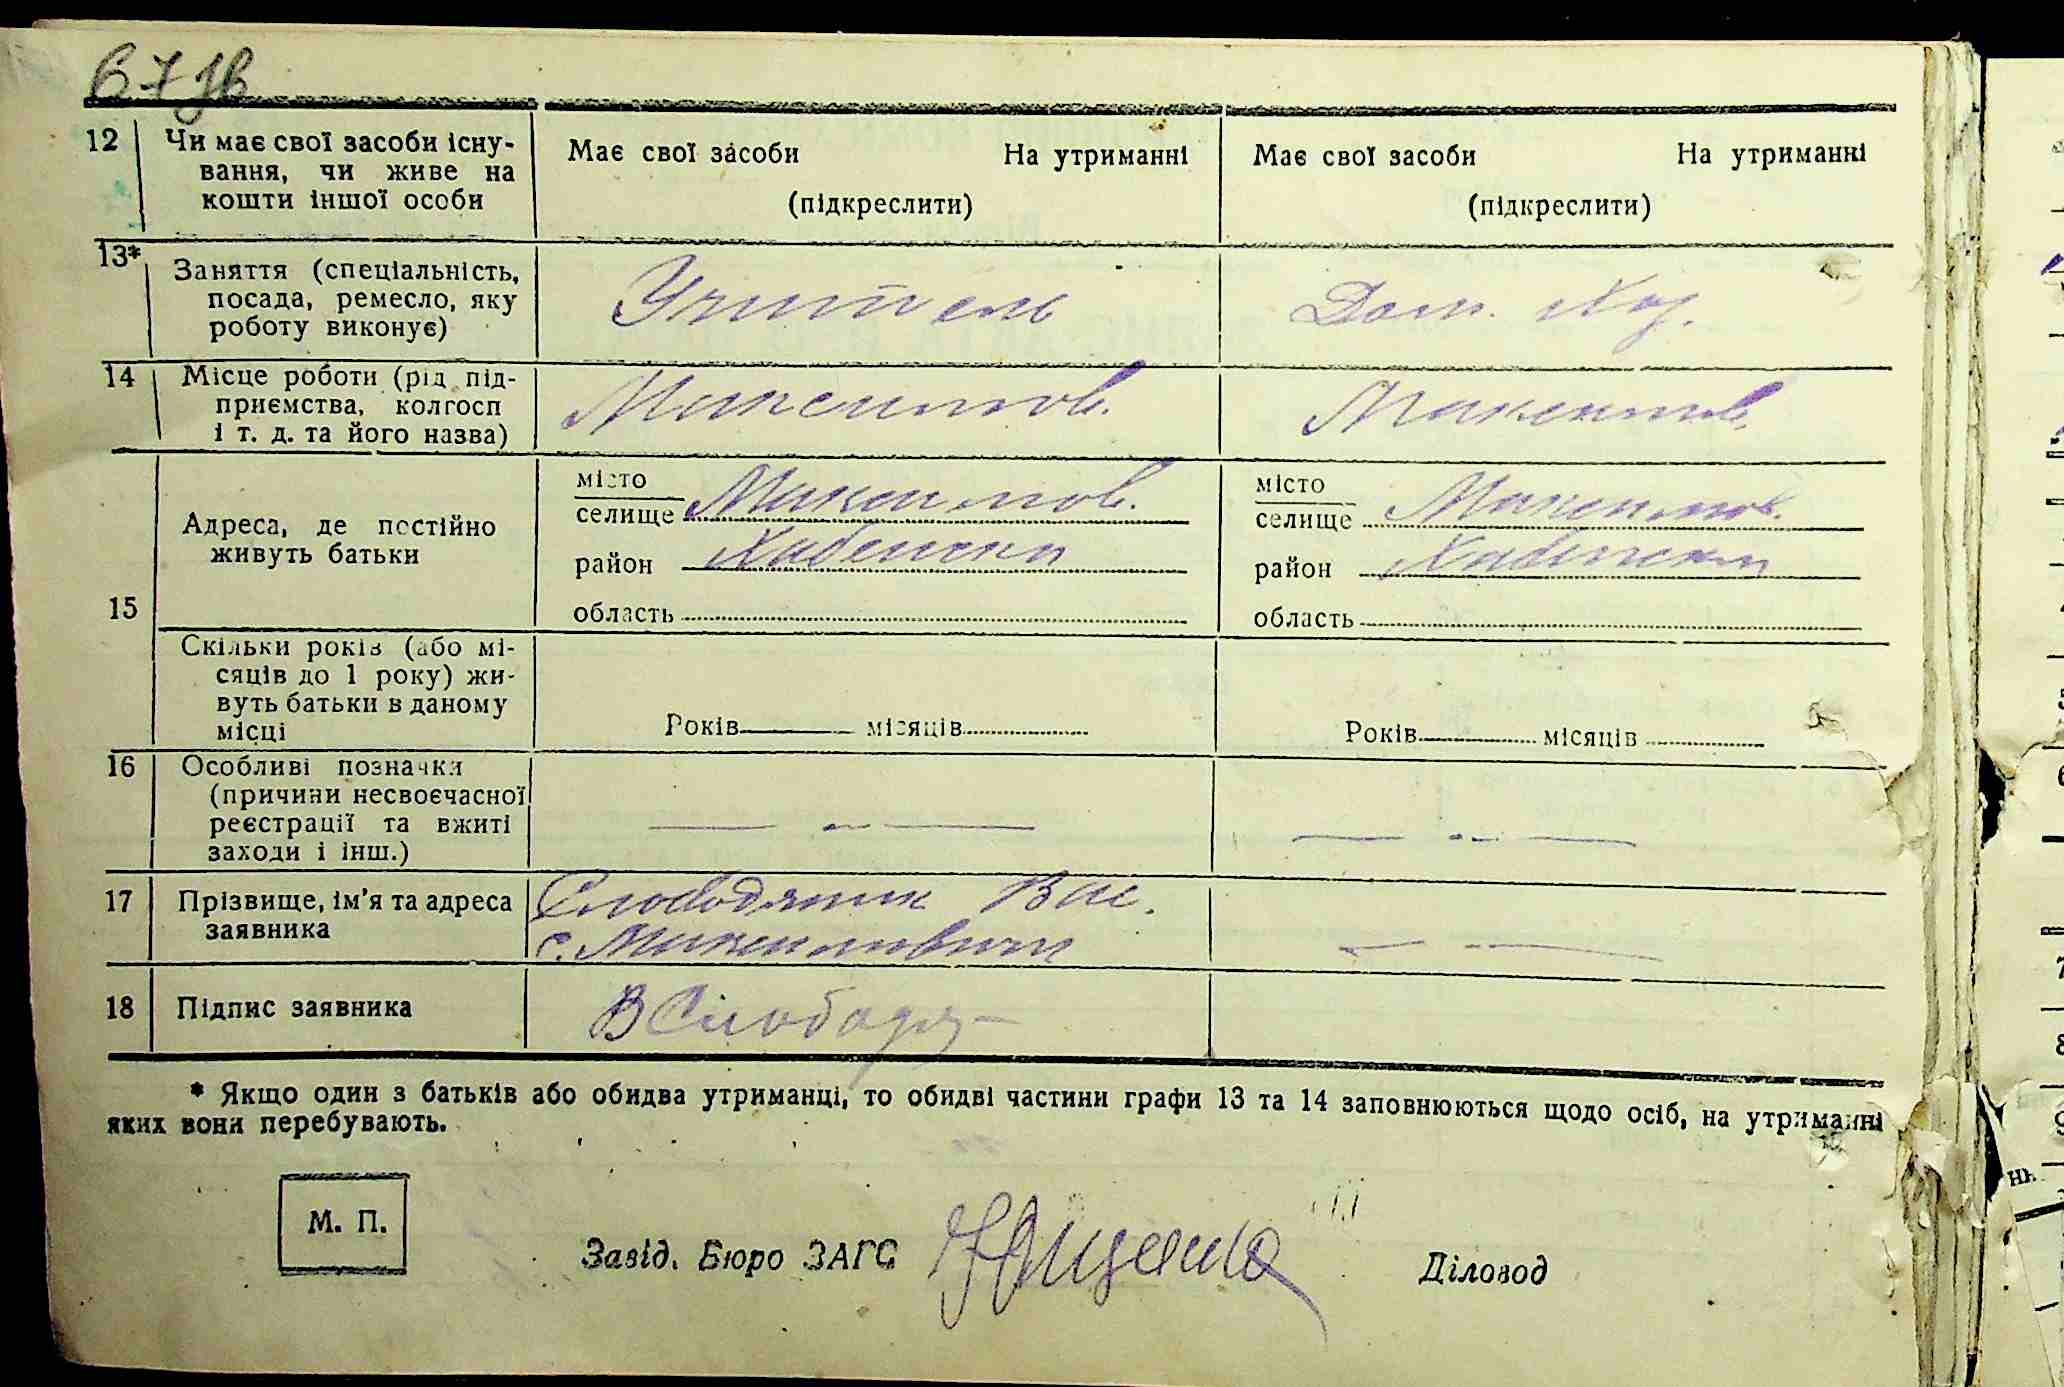 12 Чи має свої засоби існу-
вання, чи живе на
кошти іншої особи
Має свої засоби На утриманні
(підкреслити)
Має свої засоби На утриманні
(підкреслити)
13* Заняття (спеціальність,
посада, ремесло, яку
роботу виконує)
Учитель
Дом. Хоз.
14 Місце роботи (рід під-
приємства, колгосп
і т. д. та його назва)
Максимов.
Максимов.
15
Адреса, де постійно
живуть батьки
місто
селище Максимов.
район Хабенски
область
місто
селище Максимов.
район Хабенски
область
Скільки років (або мі-
сяців до 1 року) жи-
вуть батьки в даному
місці
Років місяців
Років місяців
16 Особливі позначки
(причини несвоєчасної
реєстрації та вжиті
заходи і інш.)
17 Прізвище, ім'я та адреса
заявника
Слободяник Вас.
с. Максимовичи
18 Підпис заявника
ВСлободя
* Якщо один з батьків або обидва утриманці, то обидві частини графи 13 та 14 заповнюються щодо осіб, на утриманні
яких вони перебувають.
М. П.
Завід. Бюро ЗАГС
Діловод